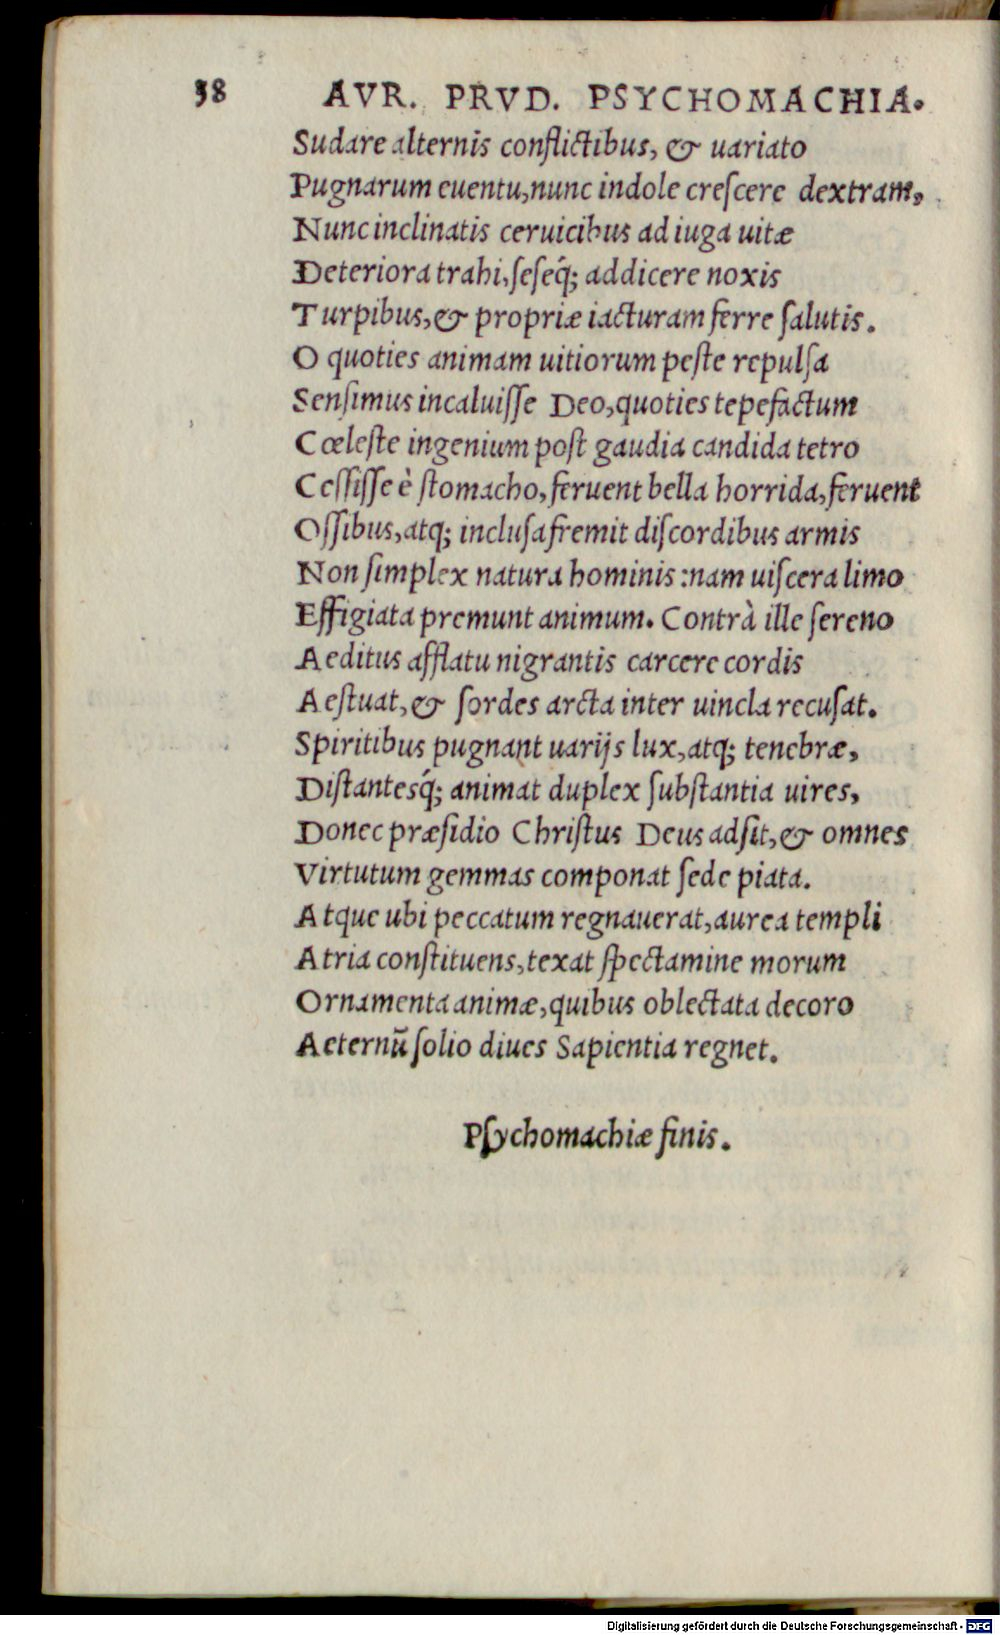 38 AVR. PRVD. PSYCHOMACHIA.
Sudare alternis conflictibus, & uariato
Pugnarum euentu, nunc indole creſcere dextram,
Nunc inclinatis ceruicibus ad iuga uitæ
Deteriora trahi, ſeſeq́; addicere noxis
Turpibus, & propriæ iacturam ferre ſalutis.
O quoties animam uitiorum peſte repulſa
Senſimus incaluiſſe Deo, quoties tepefactum
Cœleſte ingenium poſt gaudia candida tetro
Ceſſiſſe è ſtomacho, feruent bella horrida, feruent
Oſſibus, atq; incluſa fremit diſcordibus armis
Non ſimplex natura hominis: nam uiſcera limo
Effigiata premunt animum. Contrà ille ſereno
Aeditus afflatu nigrantis carcere cordis
Aeſtuat, & ſordes arcta inter uincla recuſat.
Spiritibus pugnant uarijs lux, atq; tenebræ,
Diſtantesq́; animat duplex ſubſtantia uires,
Donec præſidio Chriſtus Deus adſit, & omnes
Virtutum gemmas componat ſede piata.
Atque ubi peccatum regnauerat, aurea templi
Atria conſtituens, texat ſpectamine morum
Ornamenta animæ, quibus oblectata decoro
Aeternũ ſolio diues Sapientia regnet.
Pſychomachiæ finis.
Digitalisierung gefördert durch die Deutsche Forschungsgemeinschaft - DFG